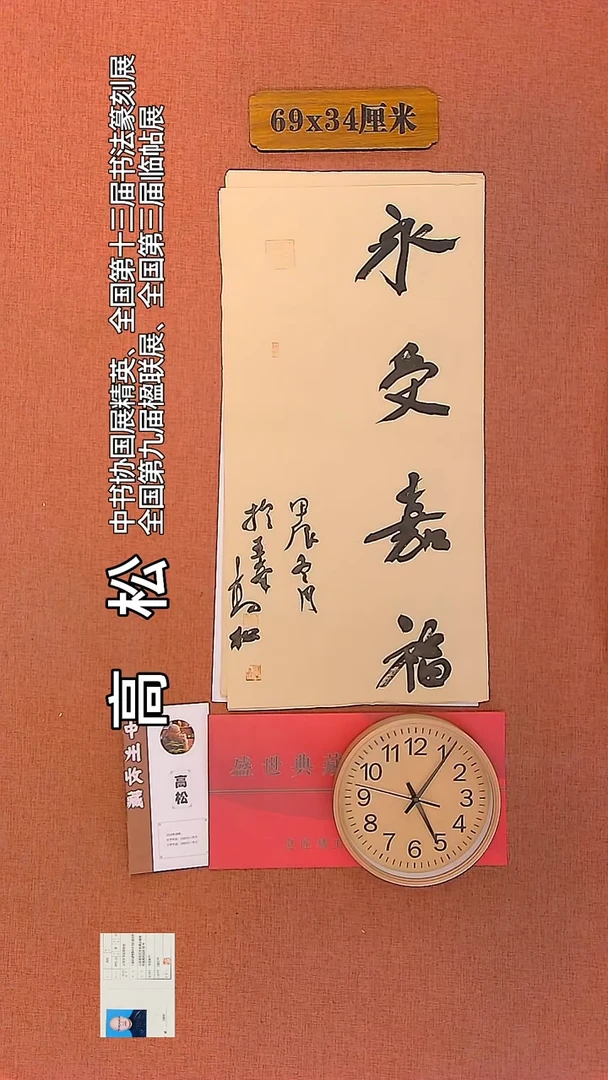 69x34厘米
永受嘉福
甲辰冬月
高松
高松
中书协国展精英、全国第十三届书法篆刻展
全国第九届楹联展、全国第三届临帖展
高松
盛世典藏
12
1
2
3
4
5
6
7
8
9
10
11